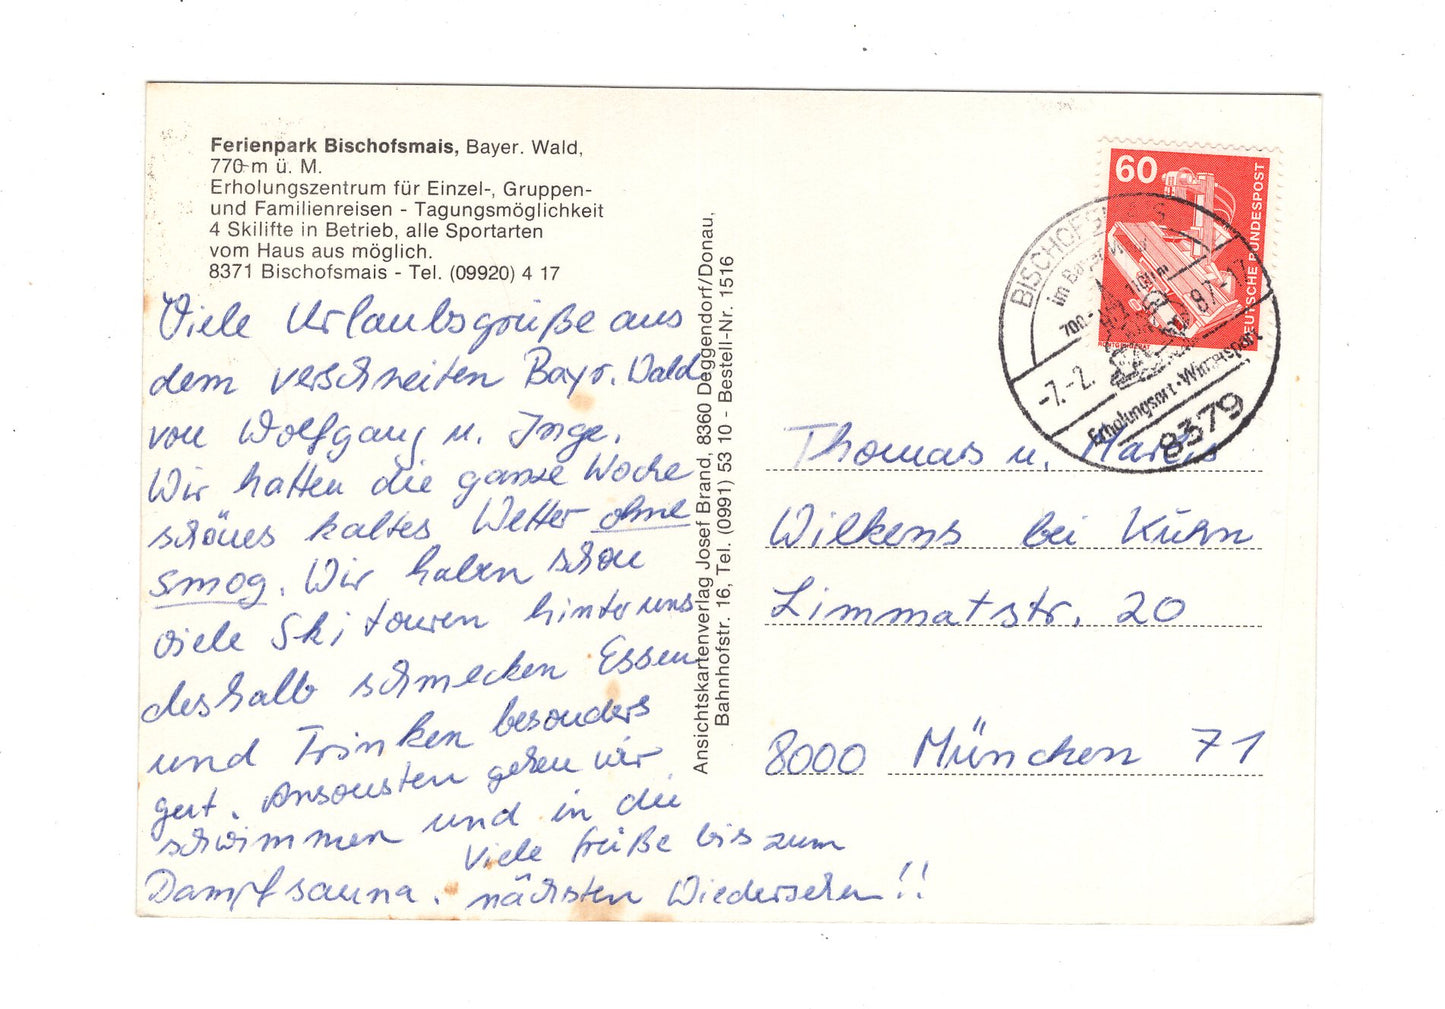 Ferienpark Bischofsmais, Bayer. Wald,
770 m ü. M.
Erholungszentrum für Einzel-, Gruppen-
und Familienreisen - Tagungsmöglichkeit
4 Skilifte in Betrieb, alle Sportarten
vom Haus aus möglich.
8371 Bischofsmais - Tel. (09920) 4 17
Viele Urlaubsgrüße aus
dem verschneiten Bayr. Wald
von Wolfgang u. Inge.
Wir hatten die ganze Woche
schönes kaltes Wetter ohne
smog. Wir haben schon
viele Skitouren hinter uns
deshalb schmecken Essen
und Trinken besonders
gut. Ansonsten gehen wir
schwimmen und in die
Dampfsauna.
Viele Grüße bis zum
nächsten Wiedersehen!!
Ansichtskartenverlag Josef Brand, 8360 Deggendorf/Donau,
Bahnhofstr. 16, Tel. (0991) 53 10 - Bestell-Nr. 1516
60
DEUTSCHE BUNDESPOST
BISCHOFSMAIS
im Bayer. W
700-
1100m
-7.-2.
87-17
Erholungsort-Wintersport
8379
Thomas u.
Wilkens bei Kühn
Limmatstr. 20
8000 München 71